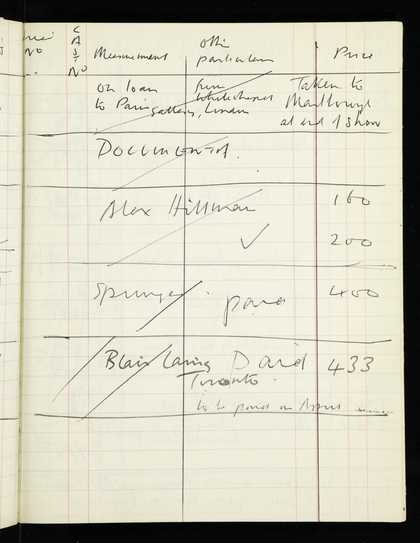 C
A
S
T
No
No
Measurement
Other particulars
Price
on loan from Taken to
to Paris Whitechapel Marlborough
Gallery, London at end of show
DOCUMENTA.
Alex Hillman 160
✓ 200
paid 400
Blair Laing Paid 433
Toronto
to be paid on